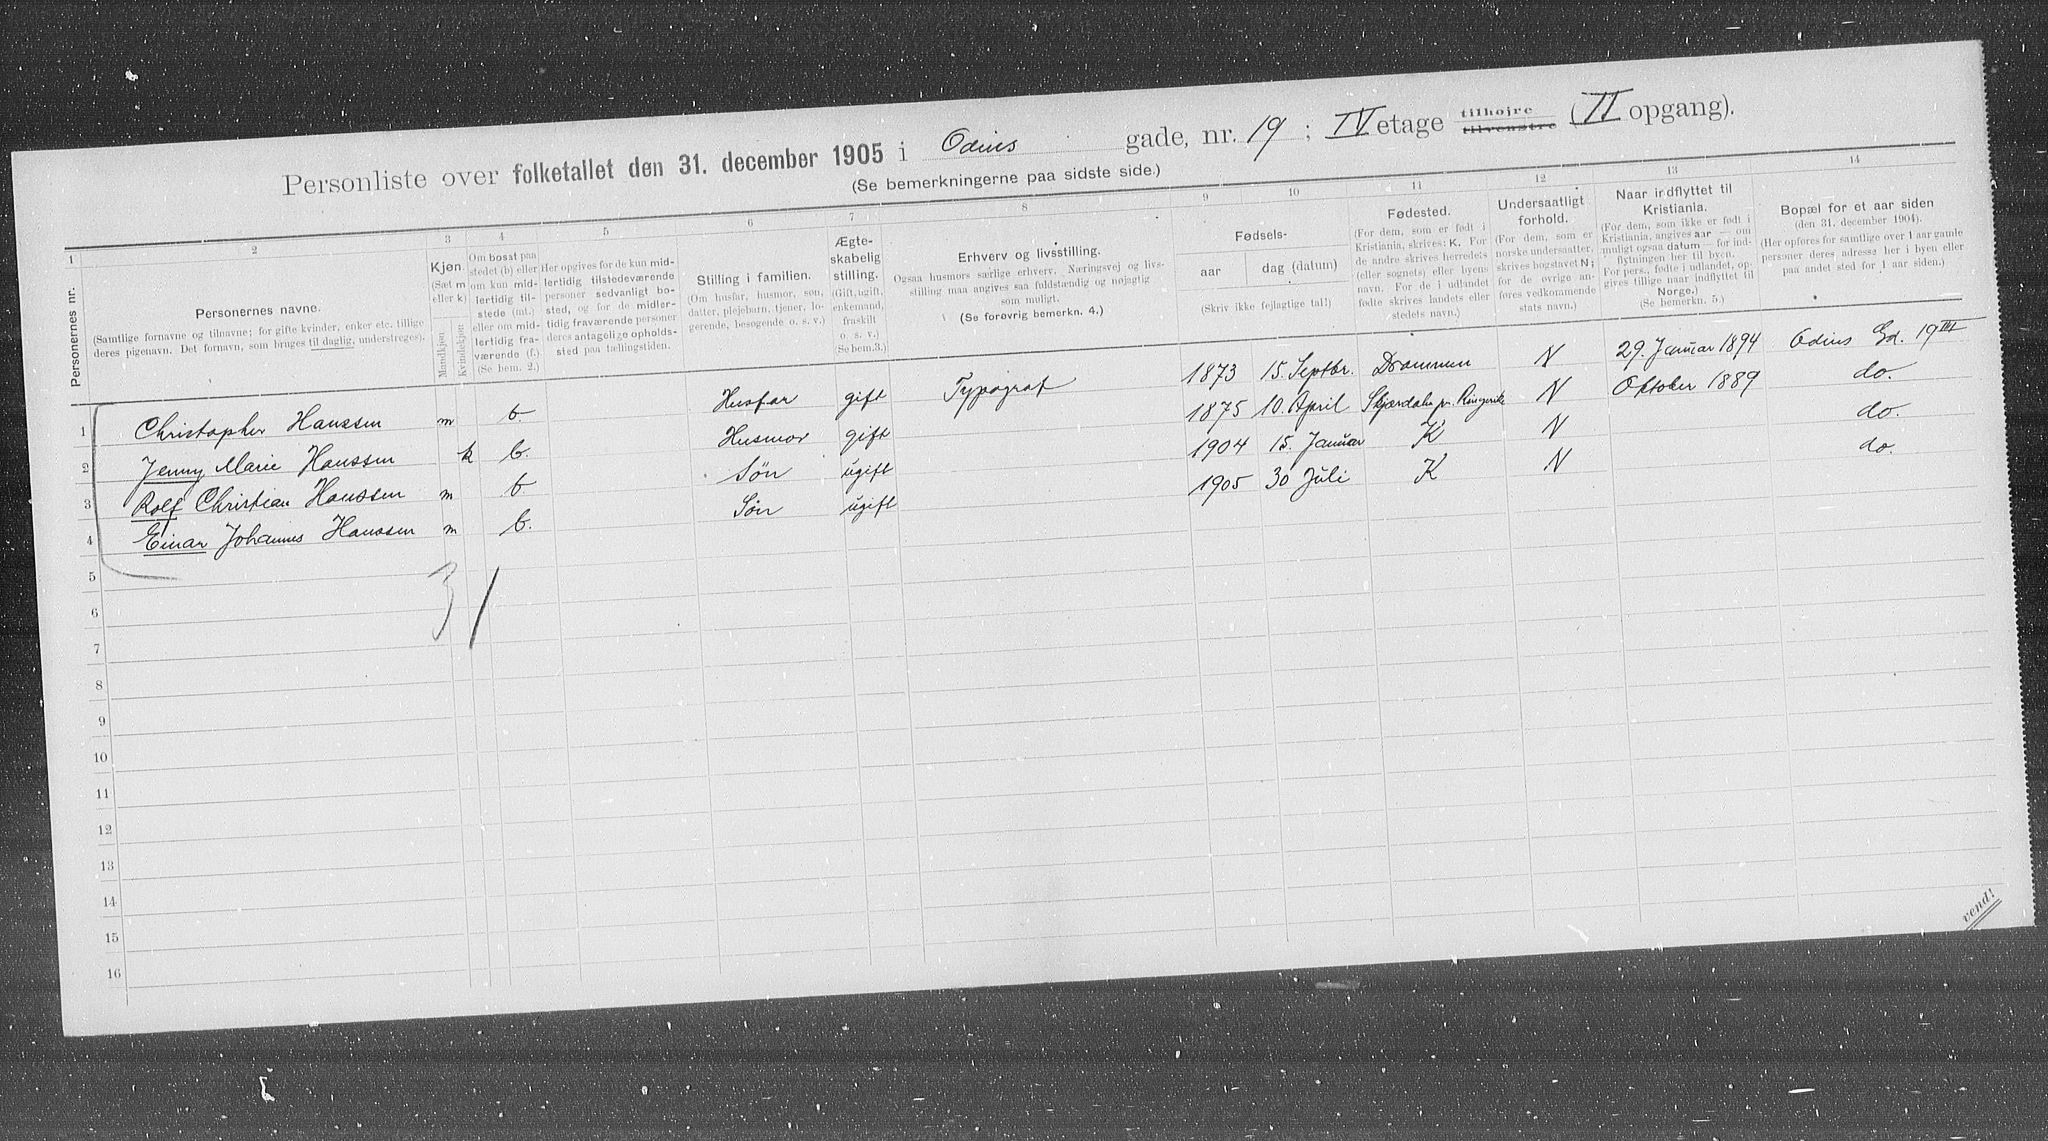 Personliste over folketallet den 31. december 1905 i Odins gade, nr. 19 ; IV etage tilhøjre tilvenstre (II opgang).
(Se bemerkningerne paa sidste side.)
1 2 3 4 5 6 7 8 9 10 11 12 13 14
Personernes nr.
Personernes navne.
(Samtlige fornavne og tilnavne; for gifte kvinder, enker etc. tillige
deres pigenavn. Det fornavn, som bruges til daglig, understreges).
Kjøn.
(Sæt m
eller k)
Mandkjøn
Kvindekjøn
Om bosat paa
stedet (b) eller
om kun mid-
lertidig til-
stede (mt.)
eller om mid-
lertidig fra-
værende (f.)
(Se bem. 2.)
Her opgives for de kun mid-
lertidig tilstedeværende
personer sedvanligt bo-
sted, og for de midler-
tidig fraværende personer
deres antagelige opholds-
sted paa tællingstiden.
Stilling i familien.
(Om husfar, husmor, søn,
datter, plejebarn, tjener, lo-
gerende, besøgende o. s. v.)
Ægte-
skabelig
stilling.
(Gift, ugift,
enkemand,
fraskilt
o. s. v.)
(Se bem. 3.)
Erhverv og livsstilling.
Ogsaa husmors særlige erhverv. Næringsvej og livs-
stilling maa angives saa fuldstændig og nøjagtig
som muligt.
(Se forøvrig bemerkn. 4.)
Fødsels-
aar dag (datum)
(Skriv ikke fejlagtige tal!)
Fødested.
(For dem, som er født i
Kristiania, skrives: K. For
de andre skrives herredets
(eller sognets) eller byens
navn. For de i udlandet
fødte skrives landets eller
stedets navn.)
Undersaatligt
forhold.
(For dem, som er
norske undersaatter,
skrives bogstavet N;
for de øvrige an-
føres vedkommende
stats navn.)
Naar indflyttet til
Kristiania.
(For dem, som ikke er født i
Kristiania, angives aar — om
muligt ogsaa datum — for ind-
flytningen her til byen.
For pers., fødte i udlandet, op-
gives tillige naar indflyttet til
Norge.)
(Se bemerkn. 5.)
Bopæl for et aar siden
(den 31. december 1904).
(Her opføres for samtlige over 1 aar gamle
personer deres adresse her i byen eller
paa andet sted for 1 aar siden.)
1 Christopher Hanssen m b. Husfar gift Typograf 1873 15. Septbr. Drammen N 29. Januar 1894 Odins Gd. 19 III
2 Jenny Marie Hanssen k b. Husmor gift 1875 10. April Skjærdalen pr. Ringerike N Oktober 1889 do.
3 Rolf Christian Hanssen m b Søn ugift 1904 15. Januar K N do.
4 Einar Johannes Hanssen m b. Søn ugift 1905 30 Juli K N do.
5
3 1
6
7
8
9
10
11
12
13
14
15
16
vend!